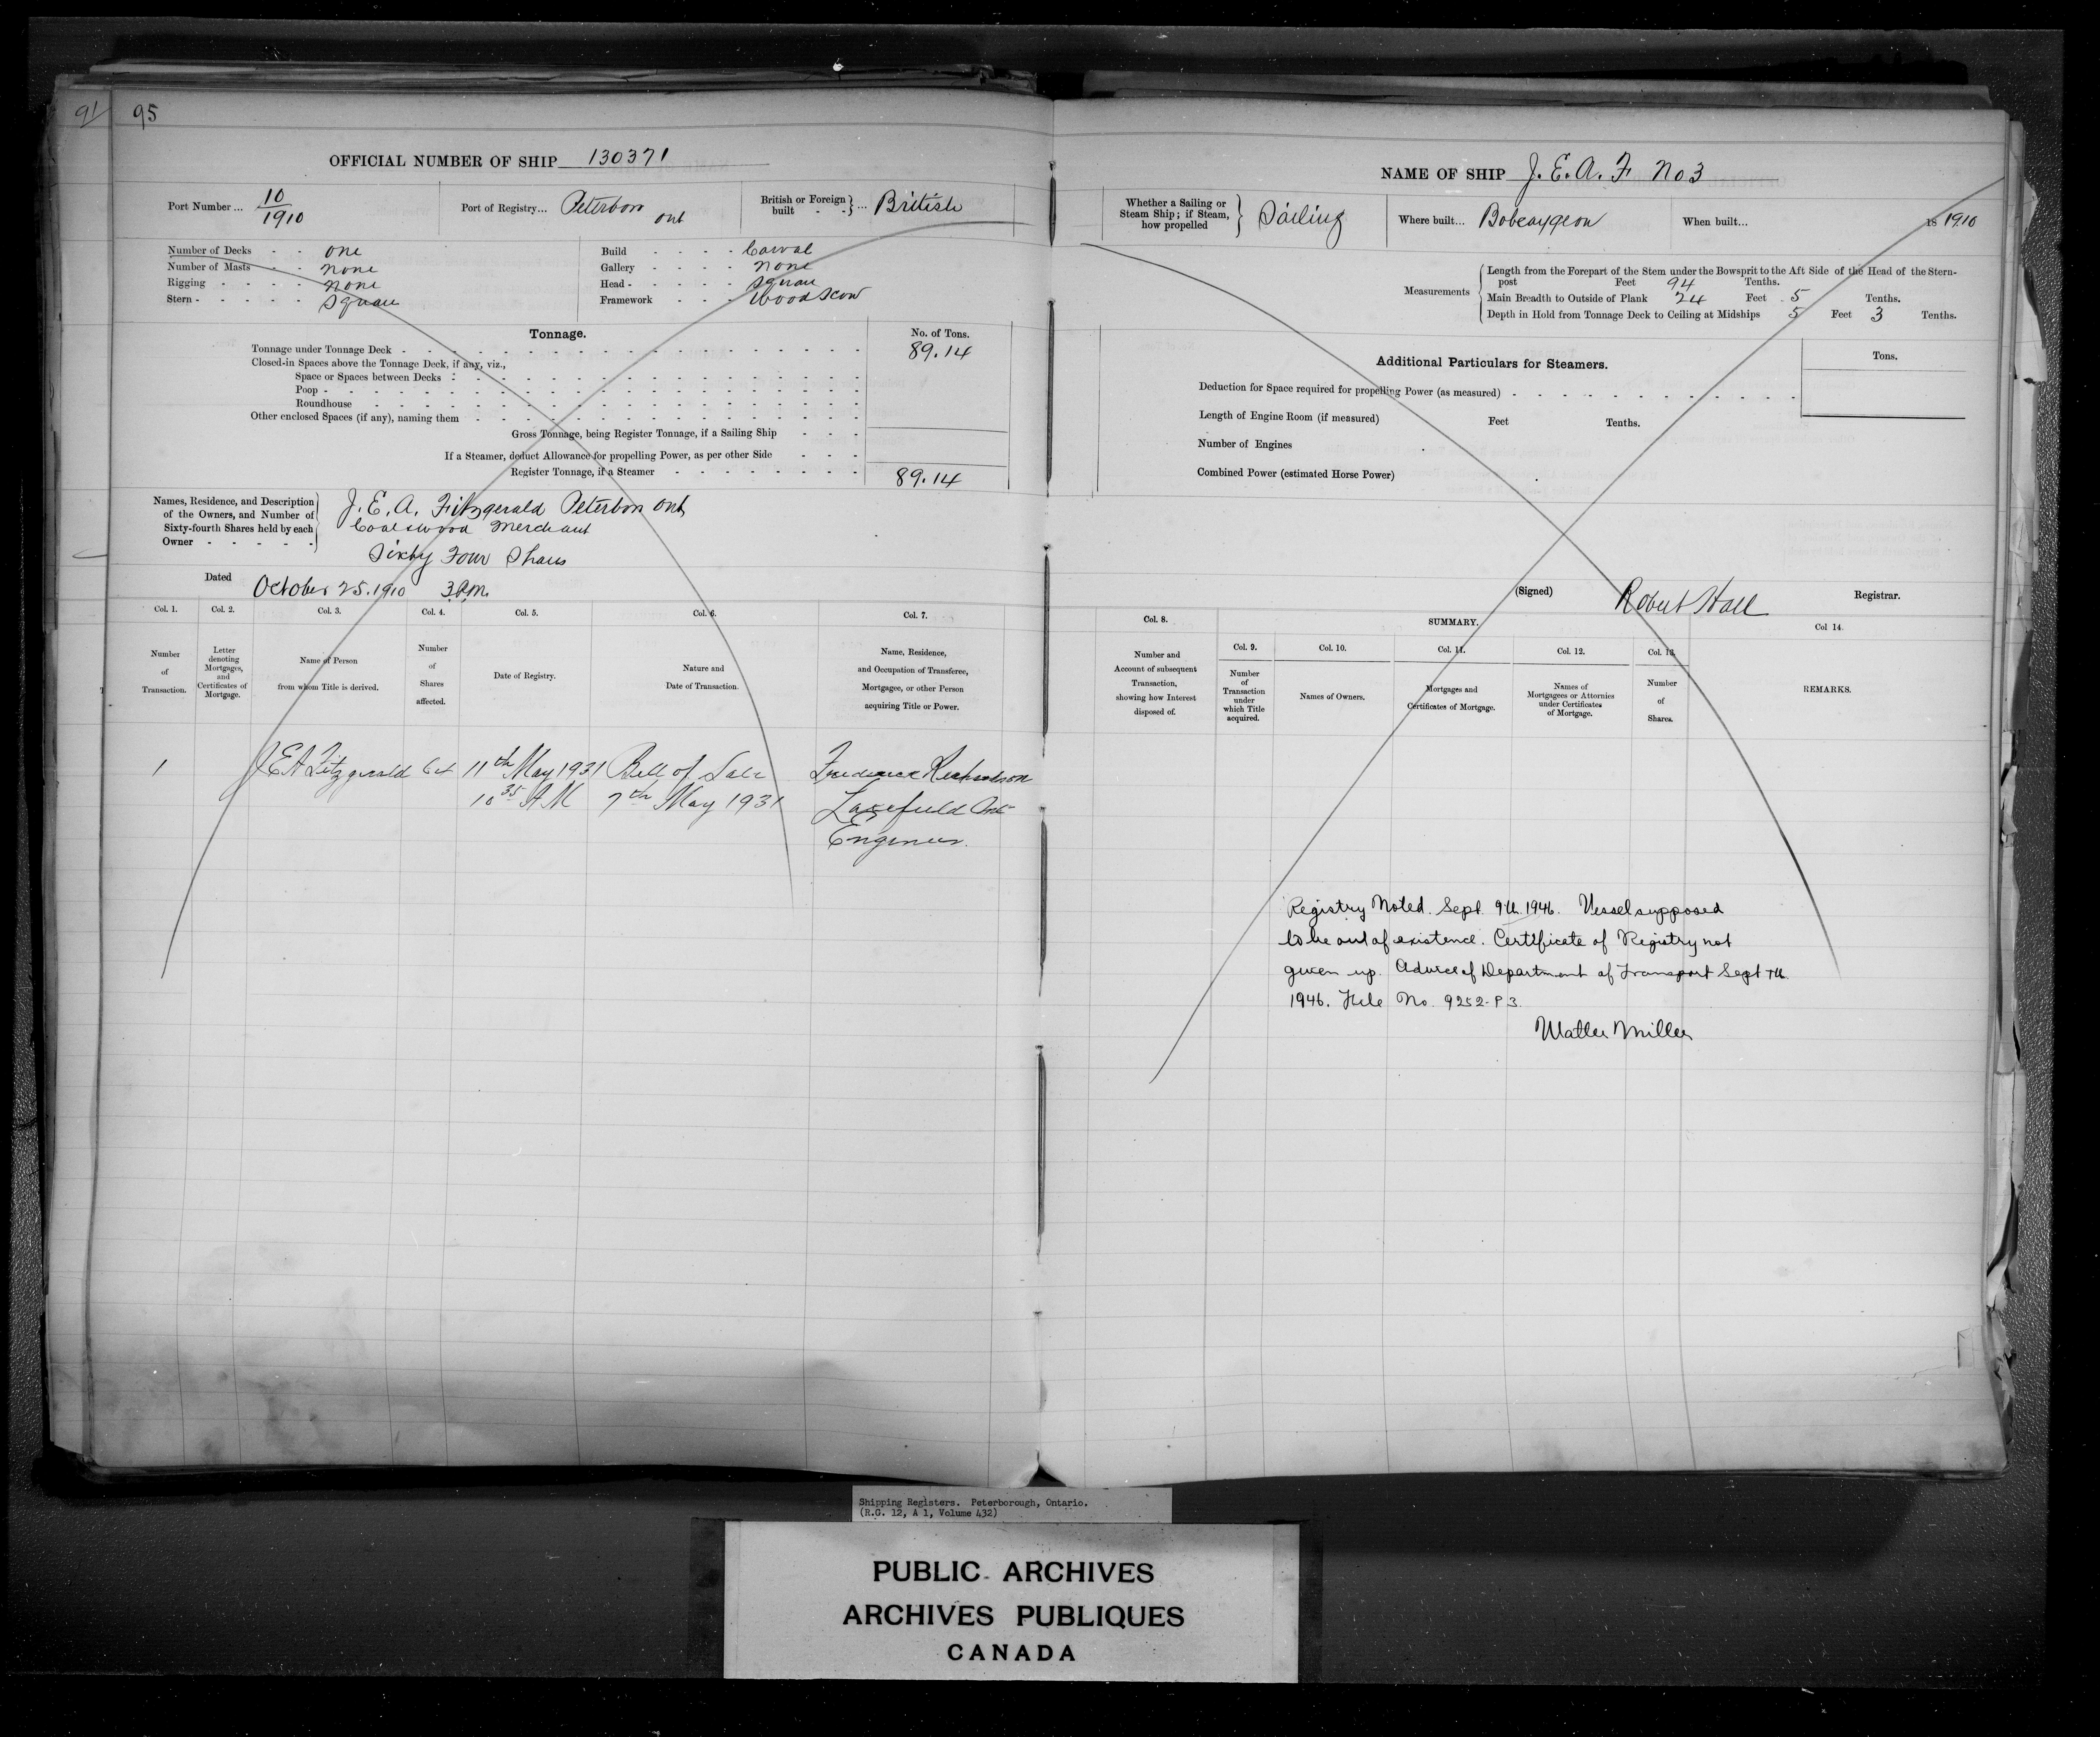 91 95
OFFICIAL NUMBER OF SHIP 130371
Port Number... 10/1910
Port of Registry... Peterboro Ont
British or Foreign built - - } ... British
Number of Decks - - one
Number of Masts - - none
Rigging - - - - none
Stern - - - - - Square
Build - - - - Carval
Gallery - - - - none
Head - - - - - Square
Framework - - - Wood Scow
Tonnage.
No. of Tons.
Tonnage under Tonnage Deck - 89.14
Closed-in Spaces above the Tonnage Deck, if any, viz.,
Space or Spaces between Decks -
Poop -
Roundhouse
Other enclosed Spaces (if any), naming them
Gross Tonnage, being Register Tonnage, if a Sailing Ship
If a Steamer, deduct Allowance for propelling Power, as per other Side
Register Tonnage, if a Steamer 89.14
Names, Residence, and Description
of the Owners, and Number of
Sixty-fourth Shares held by each
Owner - - - - -
J. E. A. Fitzgerald Peterboro Ont
Coal & wood Merchant
Sixty Four Shares
Dated October 25. 1910 3 P.M.
Col. 1. Col. 2. Col. 3. Col. 4. Col. 5. Col. 6. Col. 7.
Number of Transaction.
Letter denoting Mortgages, and Certificates of Mortgage.
Name of Person from whom Title is derived.
Number of Shares affected.
Date of Registry.
Nature and Date of Transaction.
Name, Residence, and Occupation of Transferee, Mortgagee, or other Person acquiring Title or Power.
1 J E A Fitzgerald 64 11th May 1931 Bill of Sale Frederick Richardson
10 35 A M 7th May 1931 Lakefield Ont
Engineer.
NAME OF SHIP J. E. A. F No 3
Whether a Sailing or Steam Ship; if Steam, how propelled } Sailing
Where built... Bobcaygeon
When built... 18 1910
Measurements
Length from the Forepart of the Stem under the Bowsprit to the Aft Side of the Head of the Stern-
post Feet 94 Tenths.
Main Breadth to Outside of Plank 24 Feet 5 Tenths.
Depth in Hold from Tonnage Deck to Ceiling at Midships 5 Feet 3 Tenths.
Additional Particulars for Steamers.
Tons.
Deduction for Space required for propelling Power (as measured)
Length of Engine Room (if measured) Feet Tenths.
Number of Engines
Combined Power (estimated Horse Power)
(Signed) Robert Hall Registrar.
Col. 8. SUMMARY. Col 14.
Col. 9. Col. 10. Col. 11. Col. 12. Col. 13.
Number and Account of subsequent Transaction, showing how Interest disposed of.
Number of Transaction under which Title acquired.
Names of Owners.
Mortgages and Certificates of Mortgage.
Names of Mortgagees or Attornies under Certificates of Mortgage.
Number of Shares.
REMARKS.
Registry Noted. Sept 9th. 1946. Vessel supposed
to be out of existence. Certificate of Registry not
given up. Advice of Department of Transport Sept 7th
1946. File No. 9252-P3.
Walter Miller
Shipping Registers. Peterborough, Ontario.
(R.G. 12, A 1, Volume 432)
PUBLIC ARCHIVES
ARCHIVES PUBLIQUES
CANADA